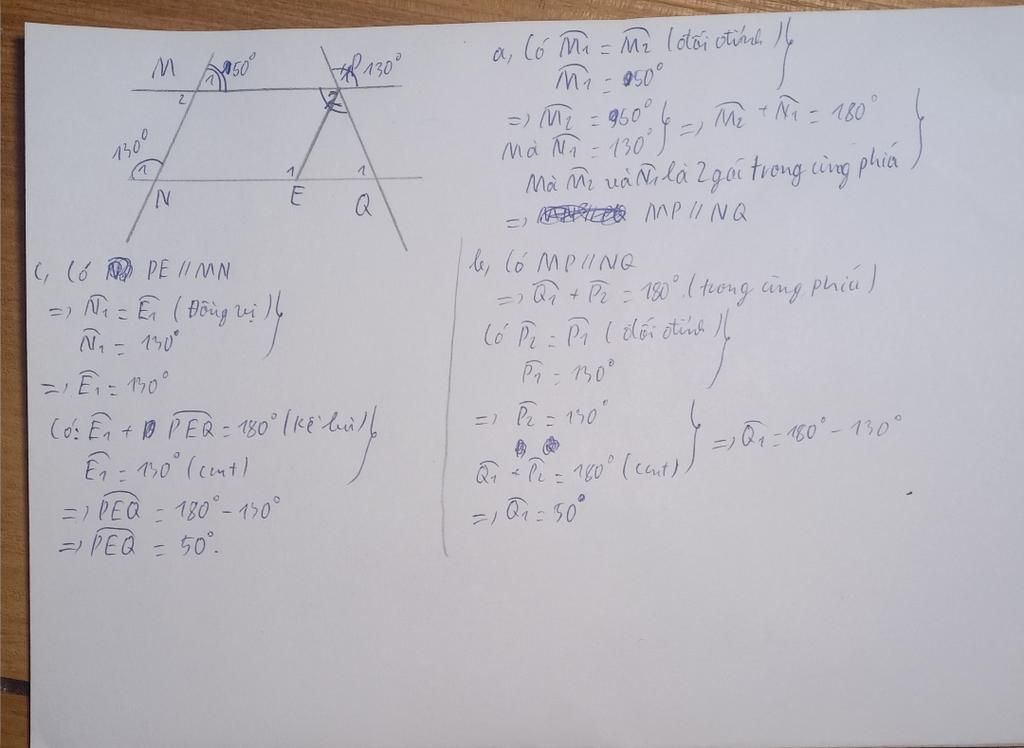 M 1 50° P 130°
2 1 2
130° 1 1 1
N E Q
a, Có M̂1 = M̂2 (đối đỉnh)
M̂1 = 50°
=> M̂2 = 50°
Mà N̂1 = 130° => M̂2 + N̂1 = 180°
Mà M̂2 và N̂1 là 2 góc trong cùng phía
=> MP // NQ
b, Có MP // NQ
=> Q̂1 + P̂2 = 180° (trong cùng phía)
Có P̂2 = P̂1 (đối đỉnh)
P̂1 = 130°
=> P̂2 = 130°
Q̂1 + P̂2 = 180° (cmt) => Q̂1 = 180° - 130°
=> Q̂1 = 50°
c, Có PE // MN
=> N̂1 = Ê1 (Đồng vị)
N̂1 = 130°
=> Ê1 = 130°
Có: Ê1 + PÊQ = 180° (kề bù)
Ê1 = 130° (cmt)
=> PÊQ = 180° - 130°
=> PÊQ = 50°.